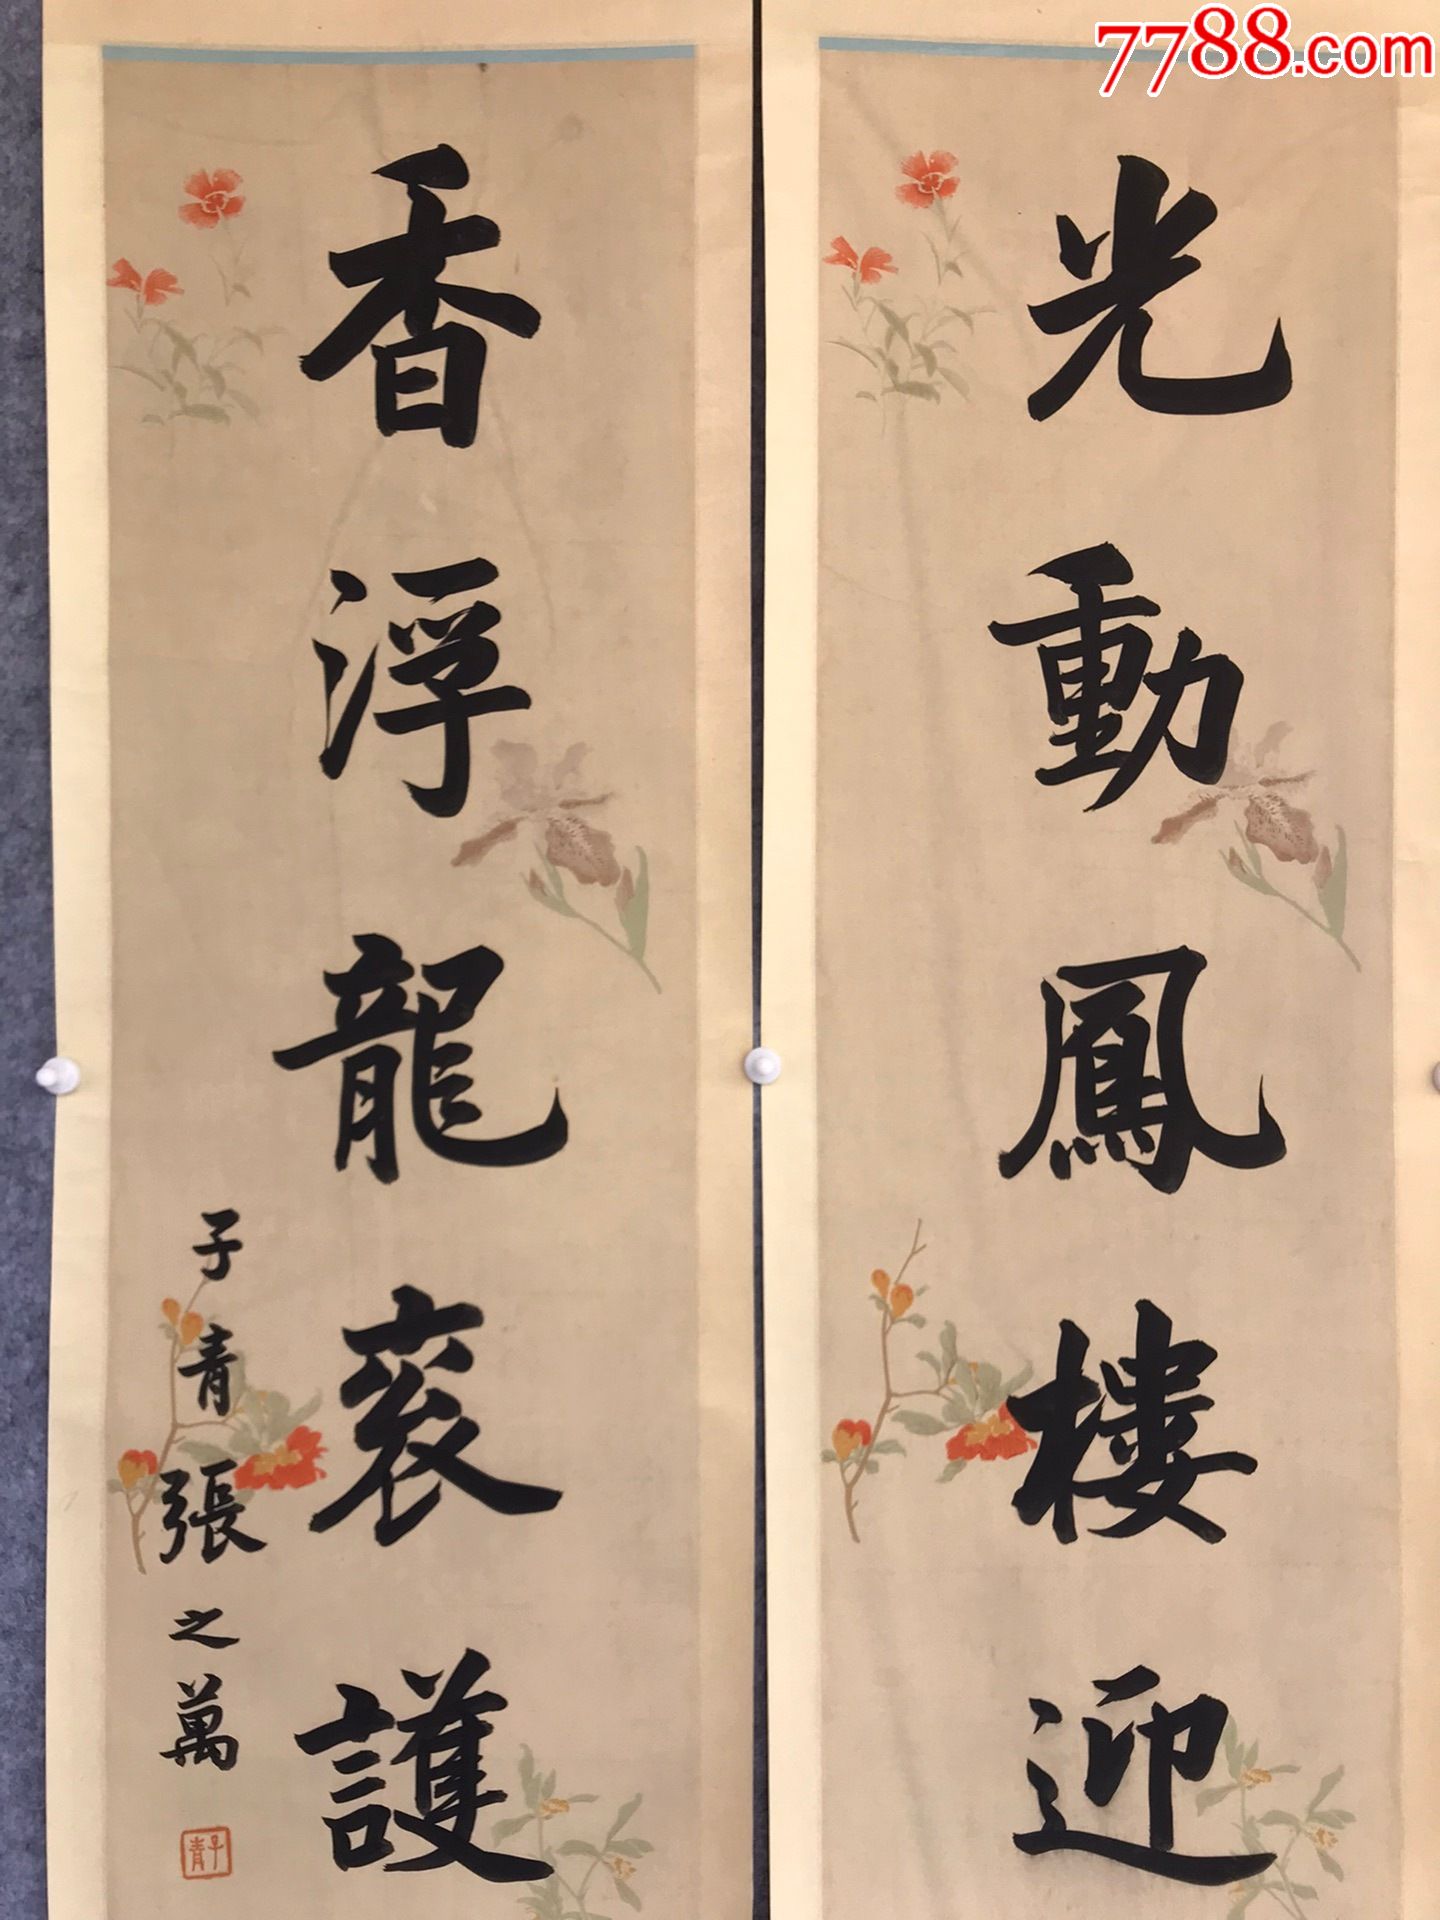 7788.com
光動鳳樓迎
香浮龍衮護
子青張之萬
子青